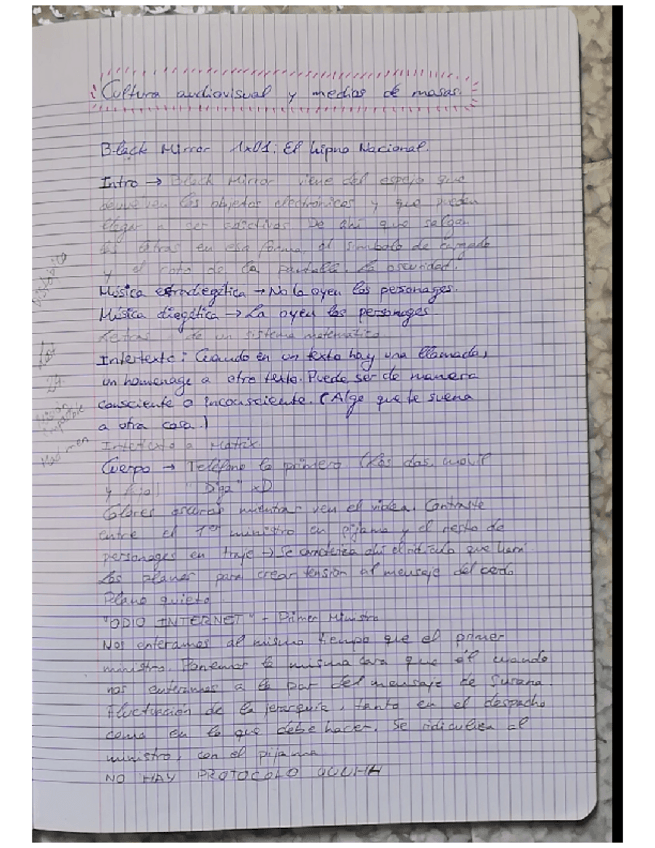 Cultura audiovisual y medios de masas.
Black Mirror 1x01: El himno Nacional.
Intro → Black Mirror viene del espejo que
los objetos electrónicos y que pueden
llegar a ser adictivos. De ahí que salgan
las letras en esa forma, el símbolo de cargado
y el roto de la pantalla. La oscuridad.
Música extradiegética → No la oyen los personages.
Música diegética → La oyen los personages
Letras de un sistema matemático
Intertexto: Cuando en un texto hay una llamada,
un homenage a otro texto. Puede ser de manera
consciente o inconsciente. (Algo que te suena
a otra cosa.)
Intertexto a Matrix
Cuerpo → Teléfono lo primero (Los dos, móvil
y fijo) "Diga" xD
Colores oscuros mientras ven el video. Contraste
entre el 1er ministro en pijama y el resto de
personages en traje → Se el ridículo que hará
Los planos para crear tensión al mensaje del cerdo
Plano quieto
"ODIO INTERNET" - Primer Ministro
Nos enteramos al mismo tiempo que el primer
ministro. Ponemos la misma cara que él cuando
nos enteramos a la par del mensaje de Susana.
Fluctuación de la jerarquía, tanto en el despacho
como en lo que debe hacer. Se ridiculiza al
ministro, con el pijama
NO HAY PROTOCOLO UUUHH
Mad men